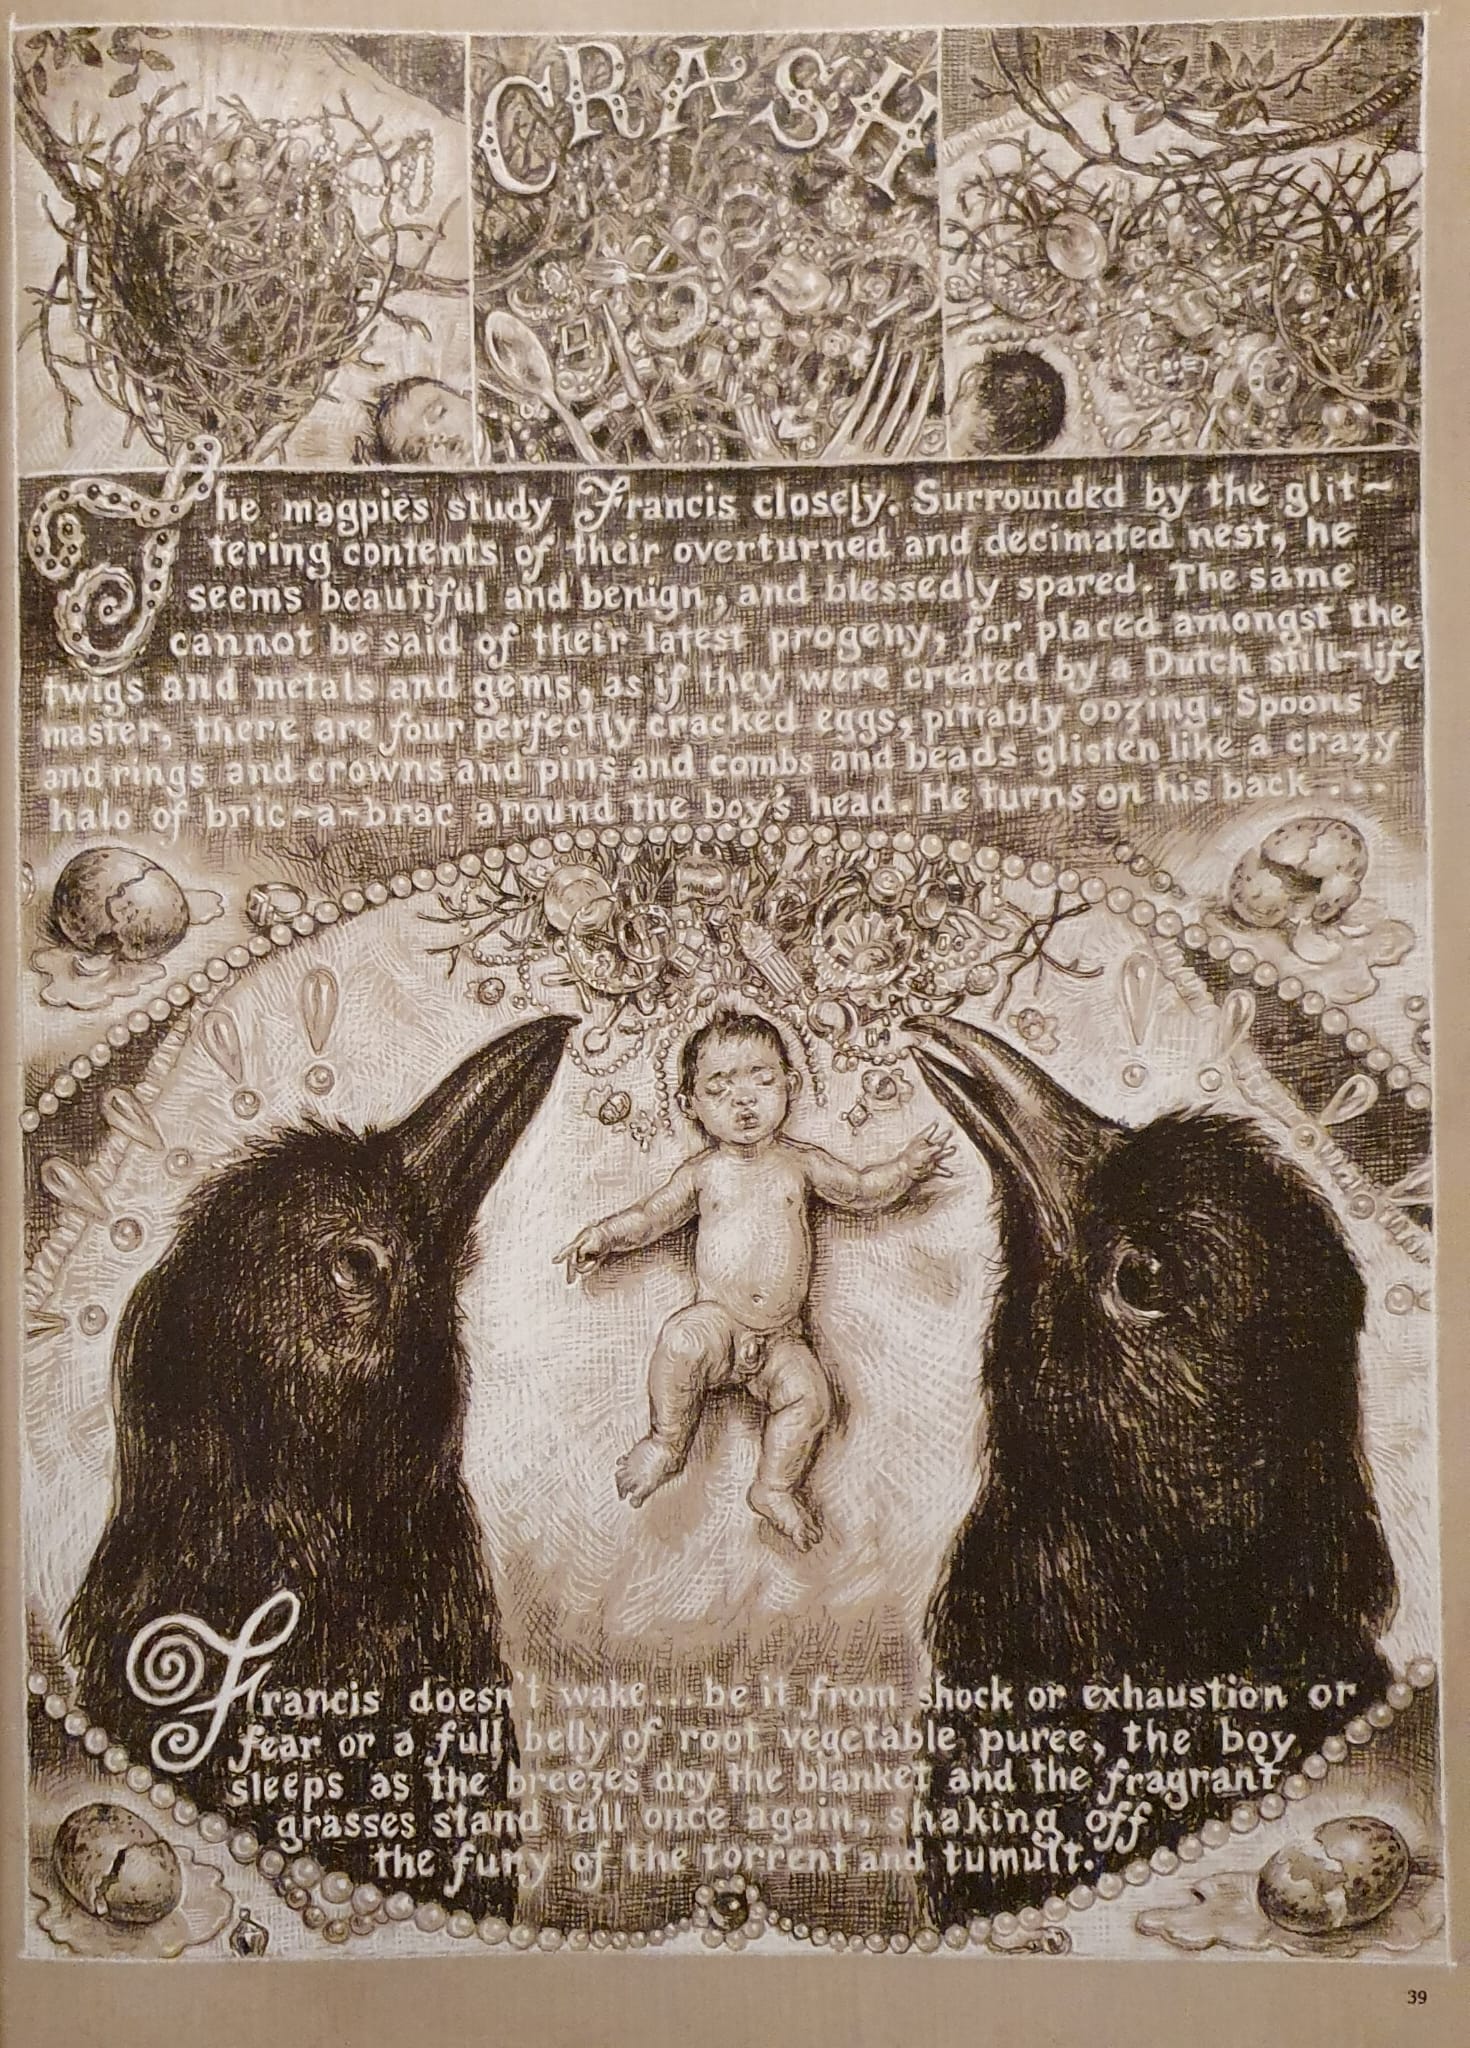 CRASH
The magpies study Francis closely. Surrounded by the glit~
tering contents of their overturned and decimated nest, he
seems beautiful and benign, and blessedly spared. The same
cannot be said of their latest progeny, for placed amongst the
twigs and metals and gems, as if they were created by a Dutch still-life
master, there are four perfectly cracked eggs, pitiably oozing. Spoons
and rings and crowns and pins and combs and beads glisten like a crazy
halo of bric~a~brac around the boy's head. He turns on his back ....
Francis doesn't wake... be it from shock or exhaustion or
fear or a full belly of root vegetable puree, the boy
sleeps as the breezes dry the blanket and the fragrant
grasses stand tall once again, shaking off
the fury of the torrent and tumult.
39